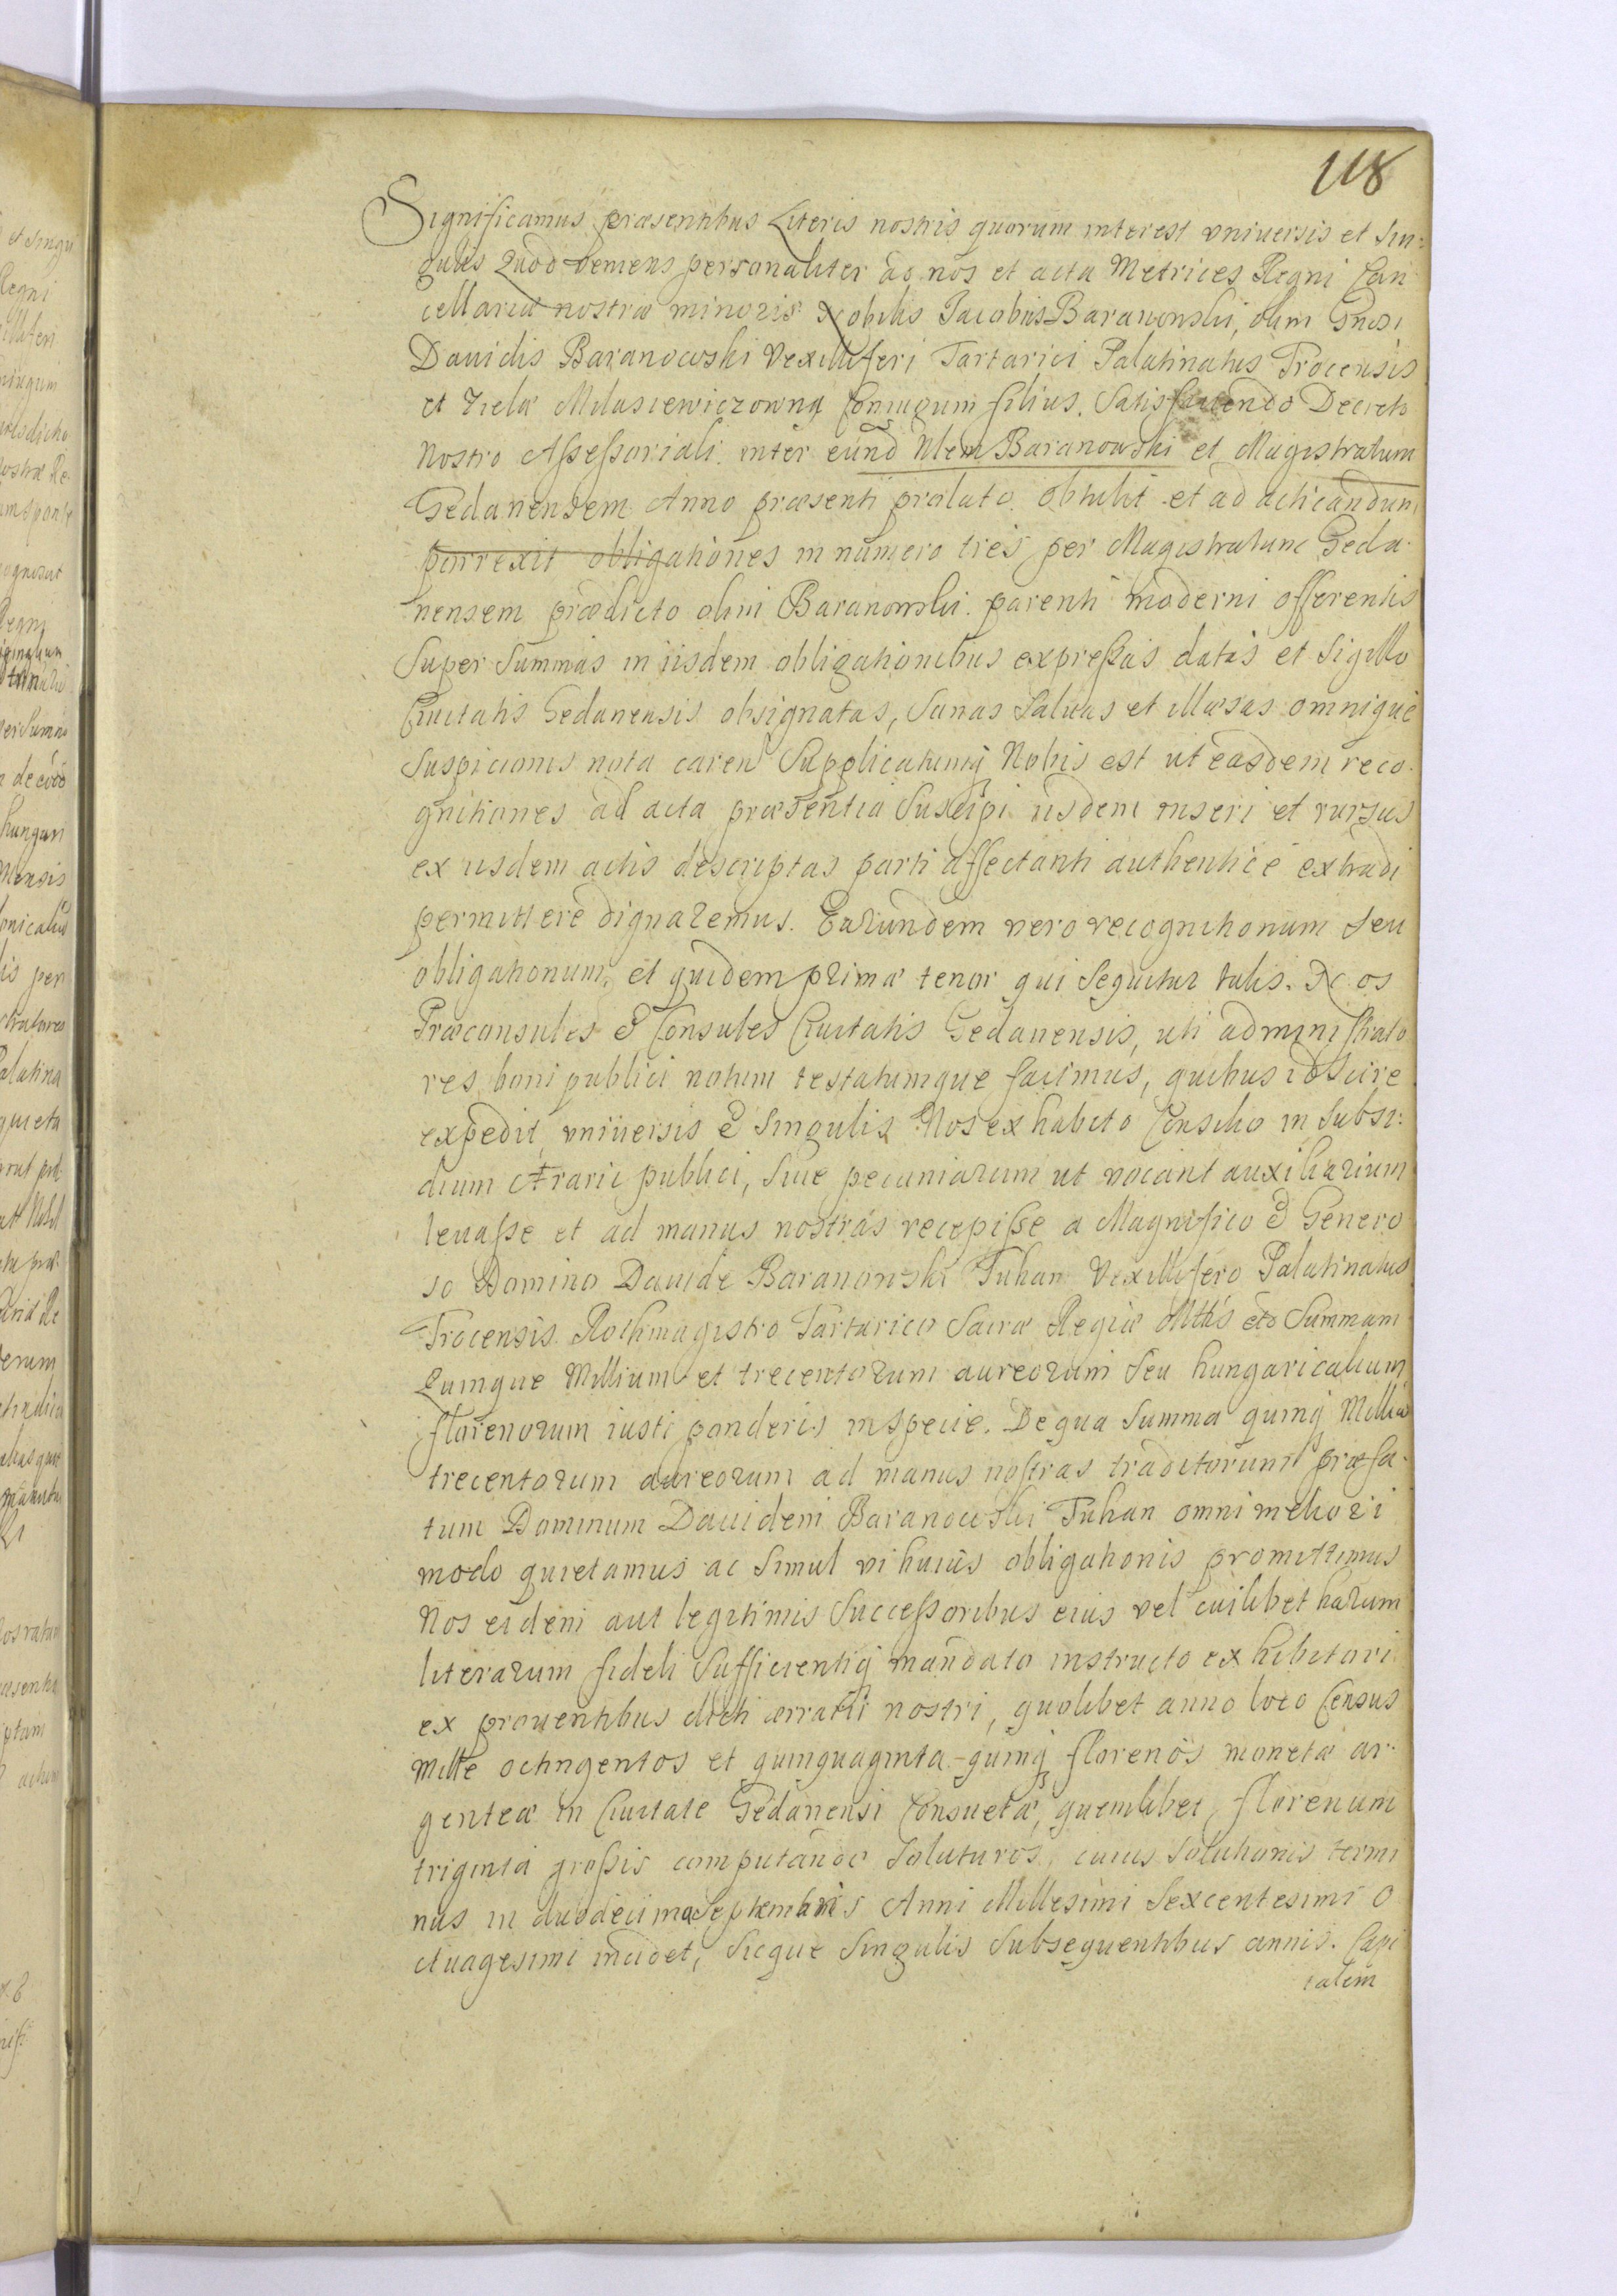 118
Significamus præsentibus Literis nostris quorum interest vniuersis et sin:
gulis Quod veniens personaliter ad nos et acta Metrices Regni Can
cellariæ nostræ minoris Nobilis Jacobus Baranowski, olim Gnosi
Dauidis Baranowski Vexilliferi Tartarici Palatinatus Trocensis
et Zielæ Milasiewiczowna Coniugum filius. Satisfaciendo Decreto
Nostro Assessoriali inter eund Nlem Baranowski et Magistratum
Gedanensem Anno præsenti prælato. obtulit et ad acticandum
porrexit obligationes in numero tres per Magistratum Geda-
nensem prædicto olim Baranowski. parenti moderni offerentis
Super Summas in iisdem obligationibus expressas datas et Sigillo
Ciuitatis Gedanensis obsignatas, Sanas Saluas et illæsas omnique
Suspicionis nota caren Supplicatumq Nobis est ut easdem reco-
gnitiones ad acta præsentia Suscipi iisdem inseri et rursus
ex iisdem actis descriptas parti affectanti authentice extradi
permittere dignaremus. Earundem vero recognitionum seu
obligationum, et quidem primæ tenor qui sequitur talis. Nos
Præconsules & Consules Ciuitatis Gedanensis, uti administrato
res boni publici notum testatumque facimus, quibus id scire
expedit, vniuersis & Singulis Nos ex habito Consilio in Subsi:
dium Ærarii publici, siue pecuniarum ut vocant auxiliarium
leuasse et ad manus nostras recepisse a Magnifico & Genero
so Domino Dauide Baranowski Tuhan Vexillifero Palatinatus
Trocensis Rothmagistro Tartarico Sacræ Regiæ Mttis etc Summam
Quinque Millium et trecentorum aureorum Seu hungaricalium
florenorum iusti ponderis in specie. De qua Summa quinq Millia
trecentorum aureorum ad manus nostras traditorum præfa-
tum Dominum Dauidem Baranowski Tuhan omni meliori
modo quietamus ac Simul vi huius obligationis promittimus
Nos eidem aut legitimis Successoribus eius vel cuilibet harum
literarum fideli Sufficientiq mandato instructo exhibitori
ex prouentibus dicti ærarii nostri, quolibet anno loco Census
Mille octingentos et quinquaginta-quinq florenos monetæ ar-
genteæ in Ciuitate Gedanensi Consuetæ, quemlibet florenum
triginta grossis computando Soluturos, cuius Solutionis termi
nus in duodecima Septembris Anni Millesimi Sexcentesimi O
ctuagesimi incidet, Sicque Singulis Subsequentibus annis. Capi
talem